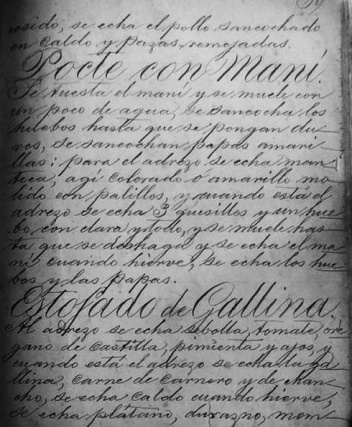 cosido, se echa el pollo sancochado
en caldo y pazas remojadas.
Pocte con Maní.
Se tuesta el maní y se muele con
un poco de agua, se sancocha los
huebos hasta que se pongan du-
ros, se sancochan papas amari-
llas: para el adrezo se echa man-
teca, agí colorado ó amarillo mo-
lido con palillos, y cuando está el
adrezo se echa 3 quesillos y un hue-
bo con clara y todo, y se muele has-
ta que se deshaga y se echa el ma-
ní cuando hierve, se echa los hue-
bos y las papas.
Estofado de Gallina.
Al adrezo se echa sebolla, tomate, oré-
gano de Castilla, pimienta y ajos, y
cuando está el adrezo se echa la ga-
llina, carne de Carnero y de chan-
cho, se echa caldo cuando hierve,
se echa plátano, durazno, mem-